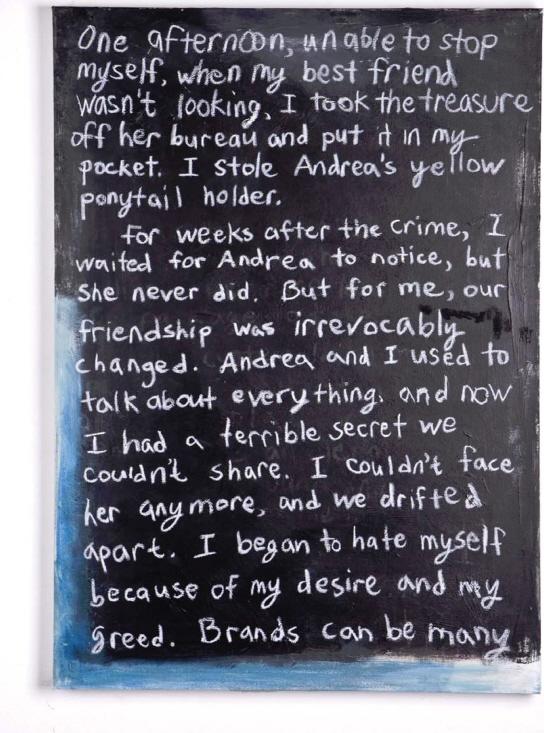 One afternoon, unable to stop
myself, when my best friend
wasn't looking, I took the treasure
off her bureau and put it in my
pocket. I stole Andrea's yellow
ponytail holder.
For weeks after the crime, I
waited for Andrea to notice, but
she never did. But for me, our
friendship was irrevocably
changed. Andrea and I used to
talk about everything, and now
I had a terrible secret we
couldn't share. I couldn't face
her anymore, and we drifted
apart. I began to hate myself
because of my desire and my
greed. Brands can be many